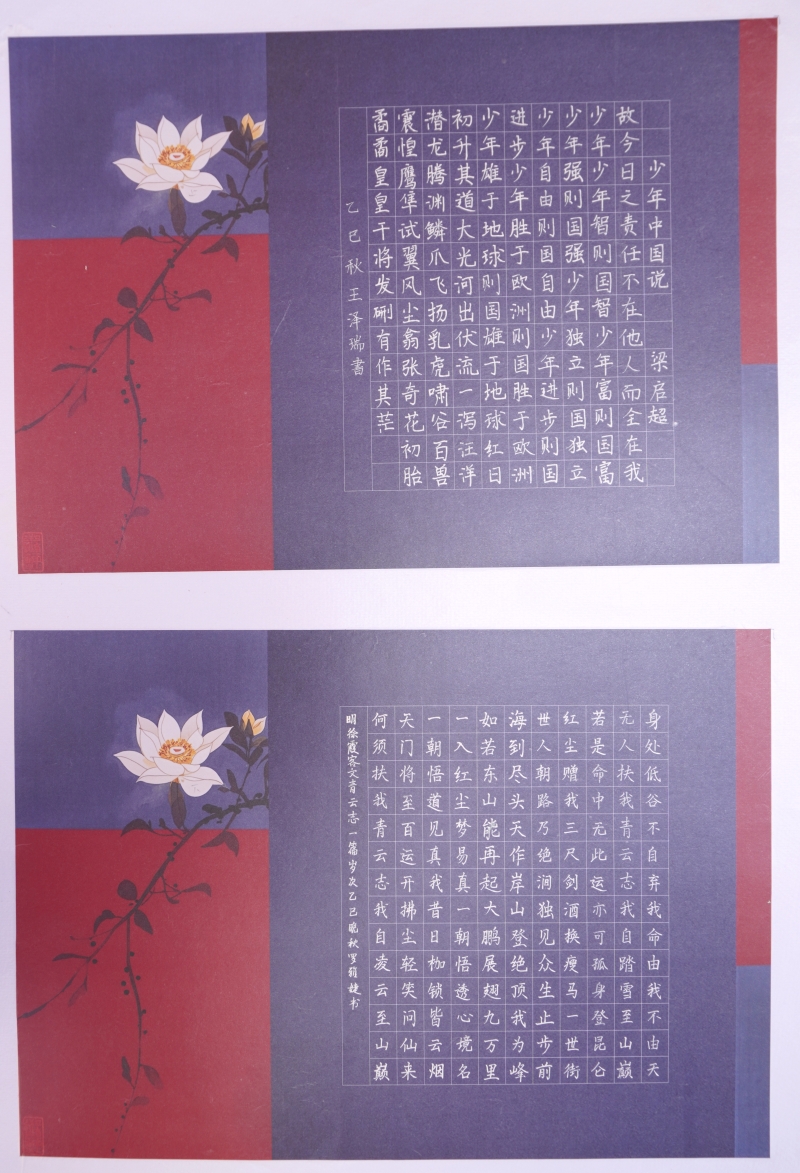 少年中国说 梁启超
故今日之责任不在他人而全在我
少年少年智则国智少年富则国富
少年强则国强少年独立则国独立
少年自由则国自由少年进步则国
进步少年胜于欧洲则国胜于欧洲
少年雄于地球则国雄于地球红日
初升其道大光河出伏流一泻汪洋
潜龙腾渊鳞爪飞扬乳虎啸谷百兽
震惶鹰隼试翼风尘翕张奇花初胎
矞矞皇皇干将发硎有作其芒
乙巳秋王泽瑞书
身处低谷不自弃我命由我不由天
无人扶我青云志我自踏雪至山巅
若是命中无此运亦可孤身登昆仑
红尘赠我三尺剑酒换瘦马一世街
世人朝路乃绝涧独见众生止步前
海到尽头天作岸山登绝顶我为峰
如若东山能再起大鹏展翅九万里
一入红尘梦易真一朝悟透心境名
一朝悟道见真我昔日枷锁皆云烟
天门将至百运开拂尘轻笑问仙来
何须扶我青云志我自凌云至山巅
明徐霞客文青云志一篇岁次乙巳晚秋罗婕书